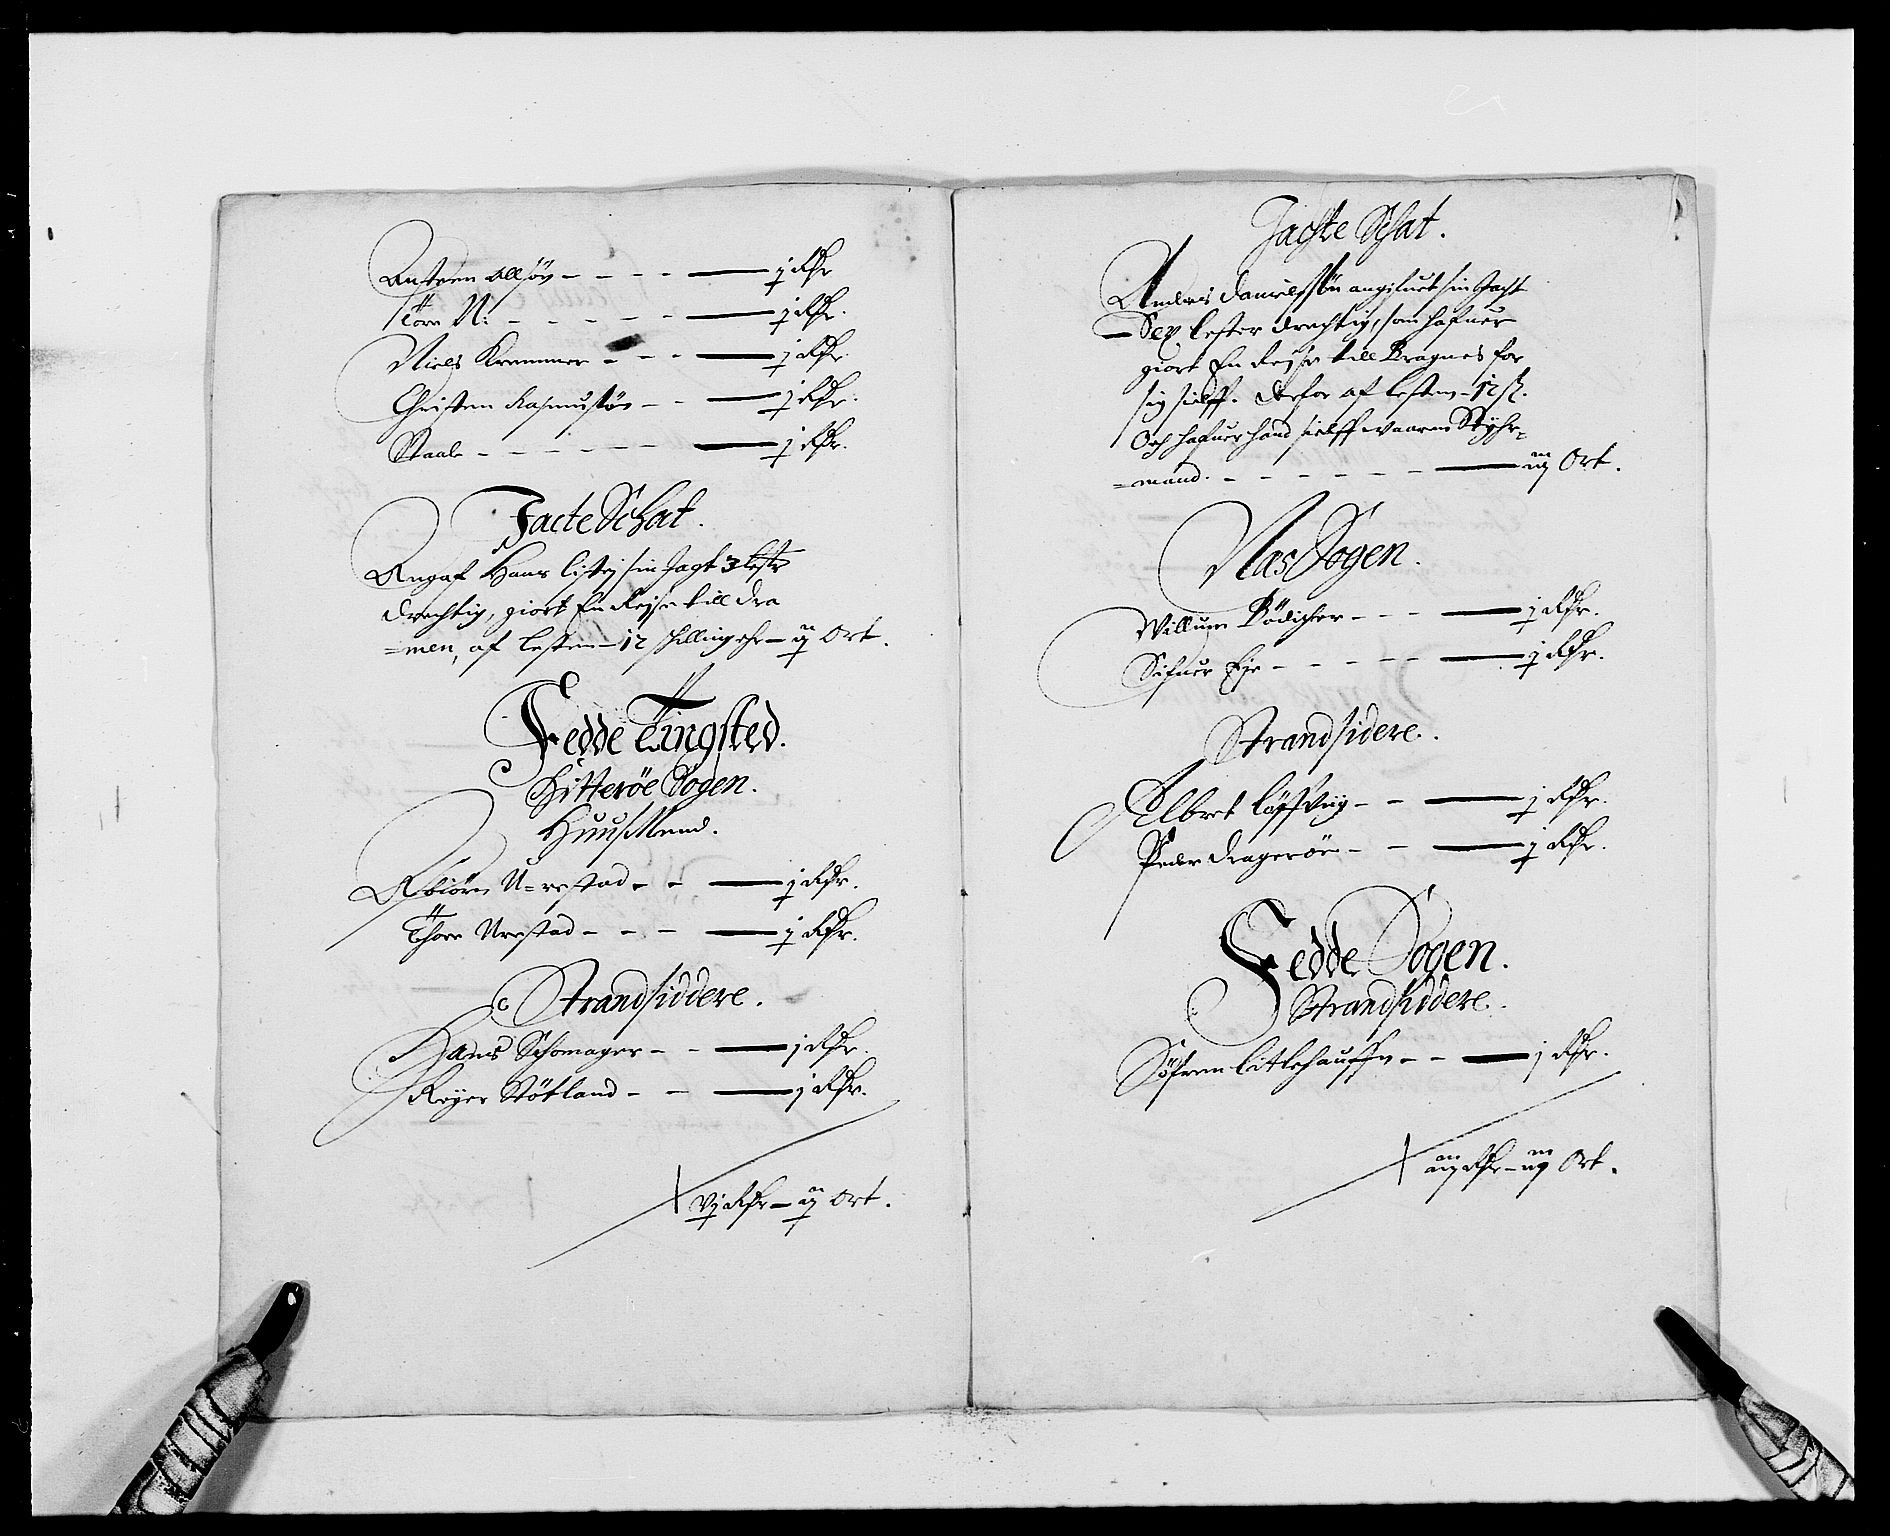 Anstenn Ollsøn - - - - j Rdr
Torn N: - - - - - j Rdr.
Niels Kremmer - - - j Rdr.
Christen Rasmusøn - - j Rdr.
Staale - - - - - - j Rdr.
Jacte Schat.
Angaf Hans Listej sin Jagt 3 lester
drechtig, giort En Reyse till Dra
=men, af lesten - 12 schilling ehr - ij Ort.
Fedde Tingsted.
Hitterøe Sogen.
Huus Mend.
Abiørn U=restad - - j Rdr.
Thore Urestad - - - j Rdr.
Strandsiddere.
Hans Schomager - - j Rdr.
Reyer Støtland - - j Rdr.
vj Rdr - ij Ort.
Jachte Schat.
Anders Danielssøn angifuet sin Jacht
Sex lester drechtig, som hafuer
giort En Reyse till Bragnes for
sig sielff. derfor af lesten - 12 s.
Och hafuer hand sielff waaren Styhr=
=mand. - - - - - - iij Ort.
Nas Sogen.
Willum Bødicher - - - j Rdr.
Sifuer Eje - - - - - j Rdr.
Strandsidere.
Elbret - - j Rdr.
Peder Dragerøen - - j Rdr.
Fedde Sogen.
Strandsiddere.
Søfren - - j Rdr.
iiij Rdr - iij Ort.